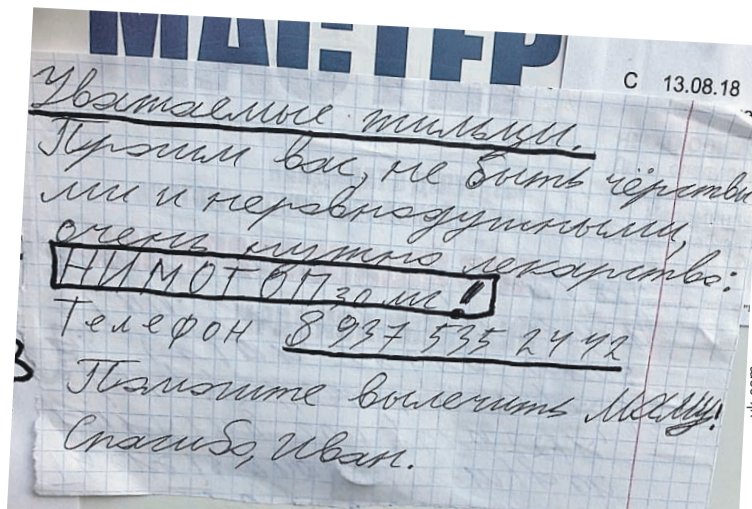 МАСТЕР
С 13.08.18
Уважаемые жильцы.
Просим вас, не быть чёрствы
ми и неравнодушными,
очень нужно лекарство:
НИМОТОП 30 мг!
Телефон 8 937 535 2442
Помогите вылечить маму!
Спасибо, Иван.